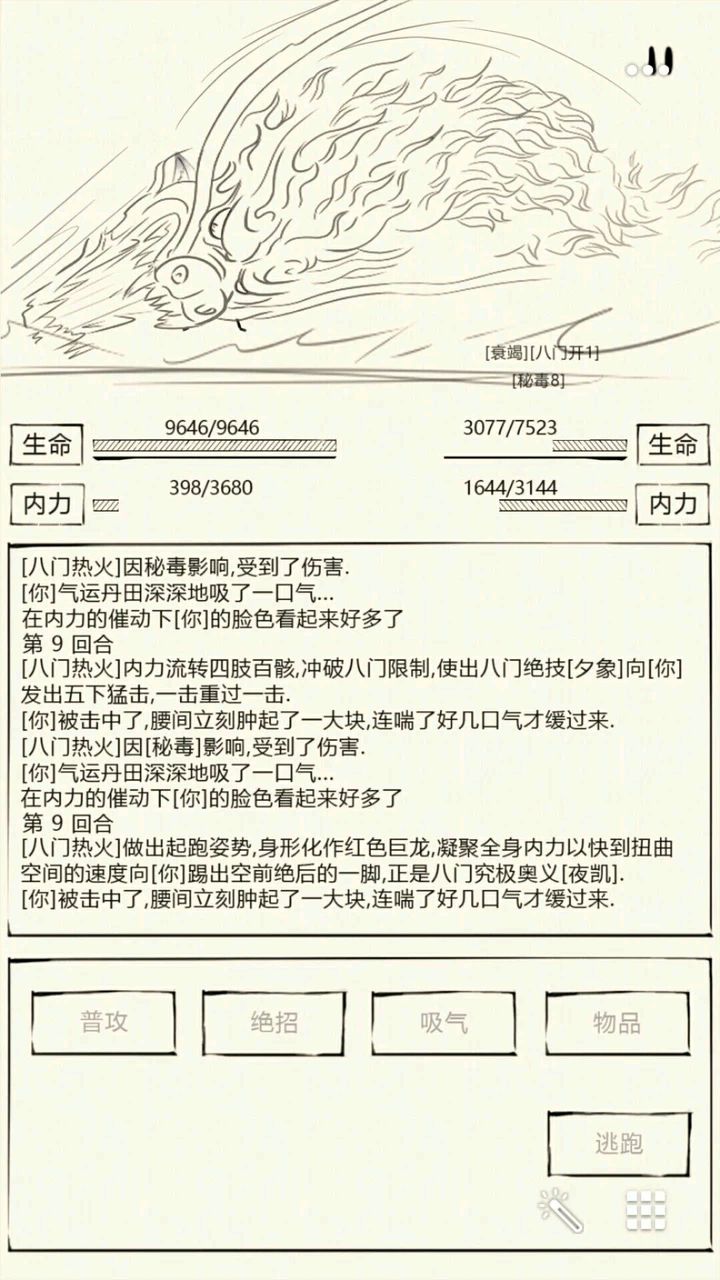 [衰竭][八门开1]
[秘毒8]
生命 9646/9646 3077/7523 生命
内力 398/3680 1644/3144 内力
[八门热火]因秘毒影响,受到了伤害.
[你]气运丹田深深地吸了一口气...
在内力的催动下[你]的脸色看起来好多了
第 9 回合
[八门热火]内力流转四肢百骸,冲破八门限制,使出八门绝技[夕象]向[你]
发出五下猛击,一击重过一击.
[你]被击中了,腰间立刻肿起了一大块,连喘了好几口气才缓过来.
[八门热火]因[秘毒]影响,受到了伤害.
[你]气运丹田深深地吸了一口气...
在内力的催动下[你]的脸色看起来好多了
第 9 回合
[八门热火]做出起跑姿势,身形化作红色巨龙,凝聚全身内力以快到扭曲
空间的速度向[你]踢出空前绝后的一脚,正是八门究极奥义[夜凯].
[你]被击中了,腰间立刻肿起了一大块,连喘了好几口气才缓过来.
普攻 绝招 吸气 物品
逃跑